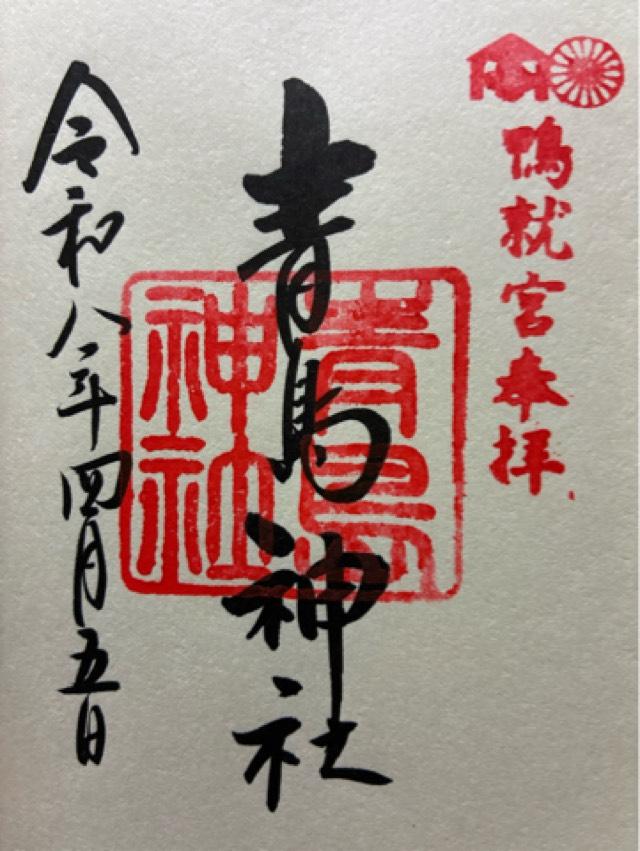 鴨就宮奉拝
青島神社
令和八年四月五日
青島
神社